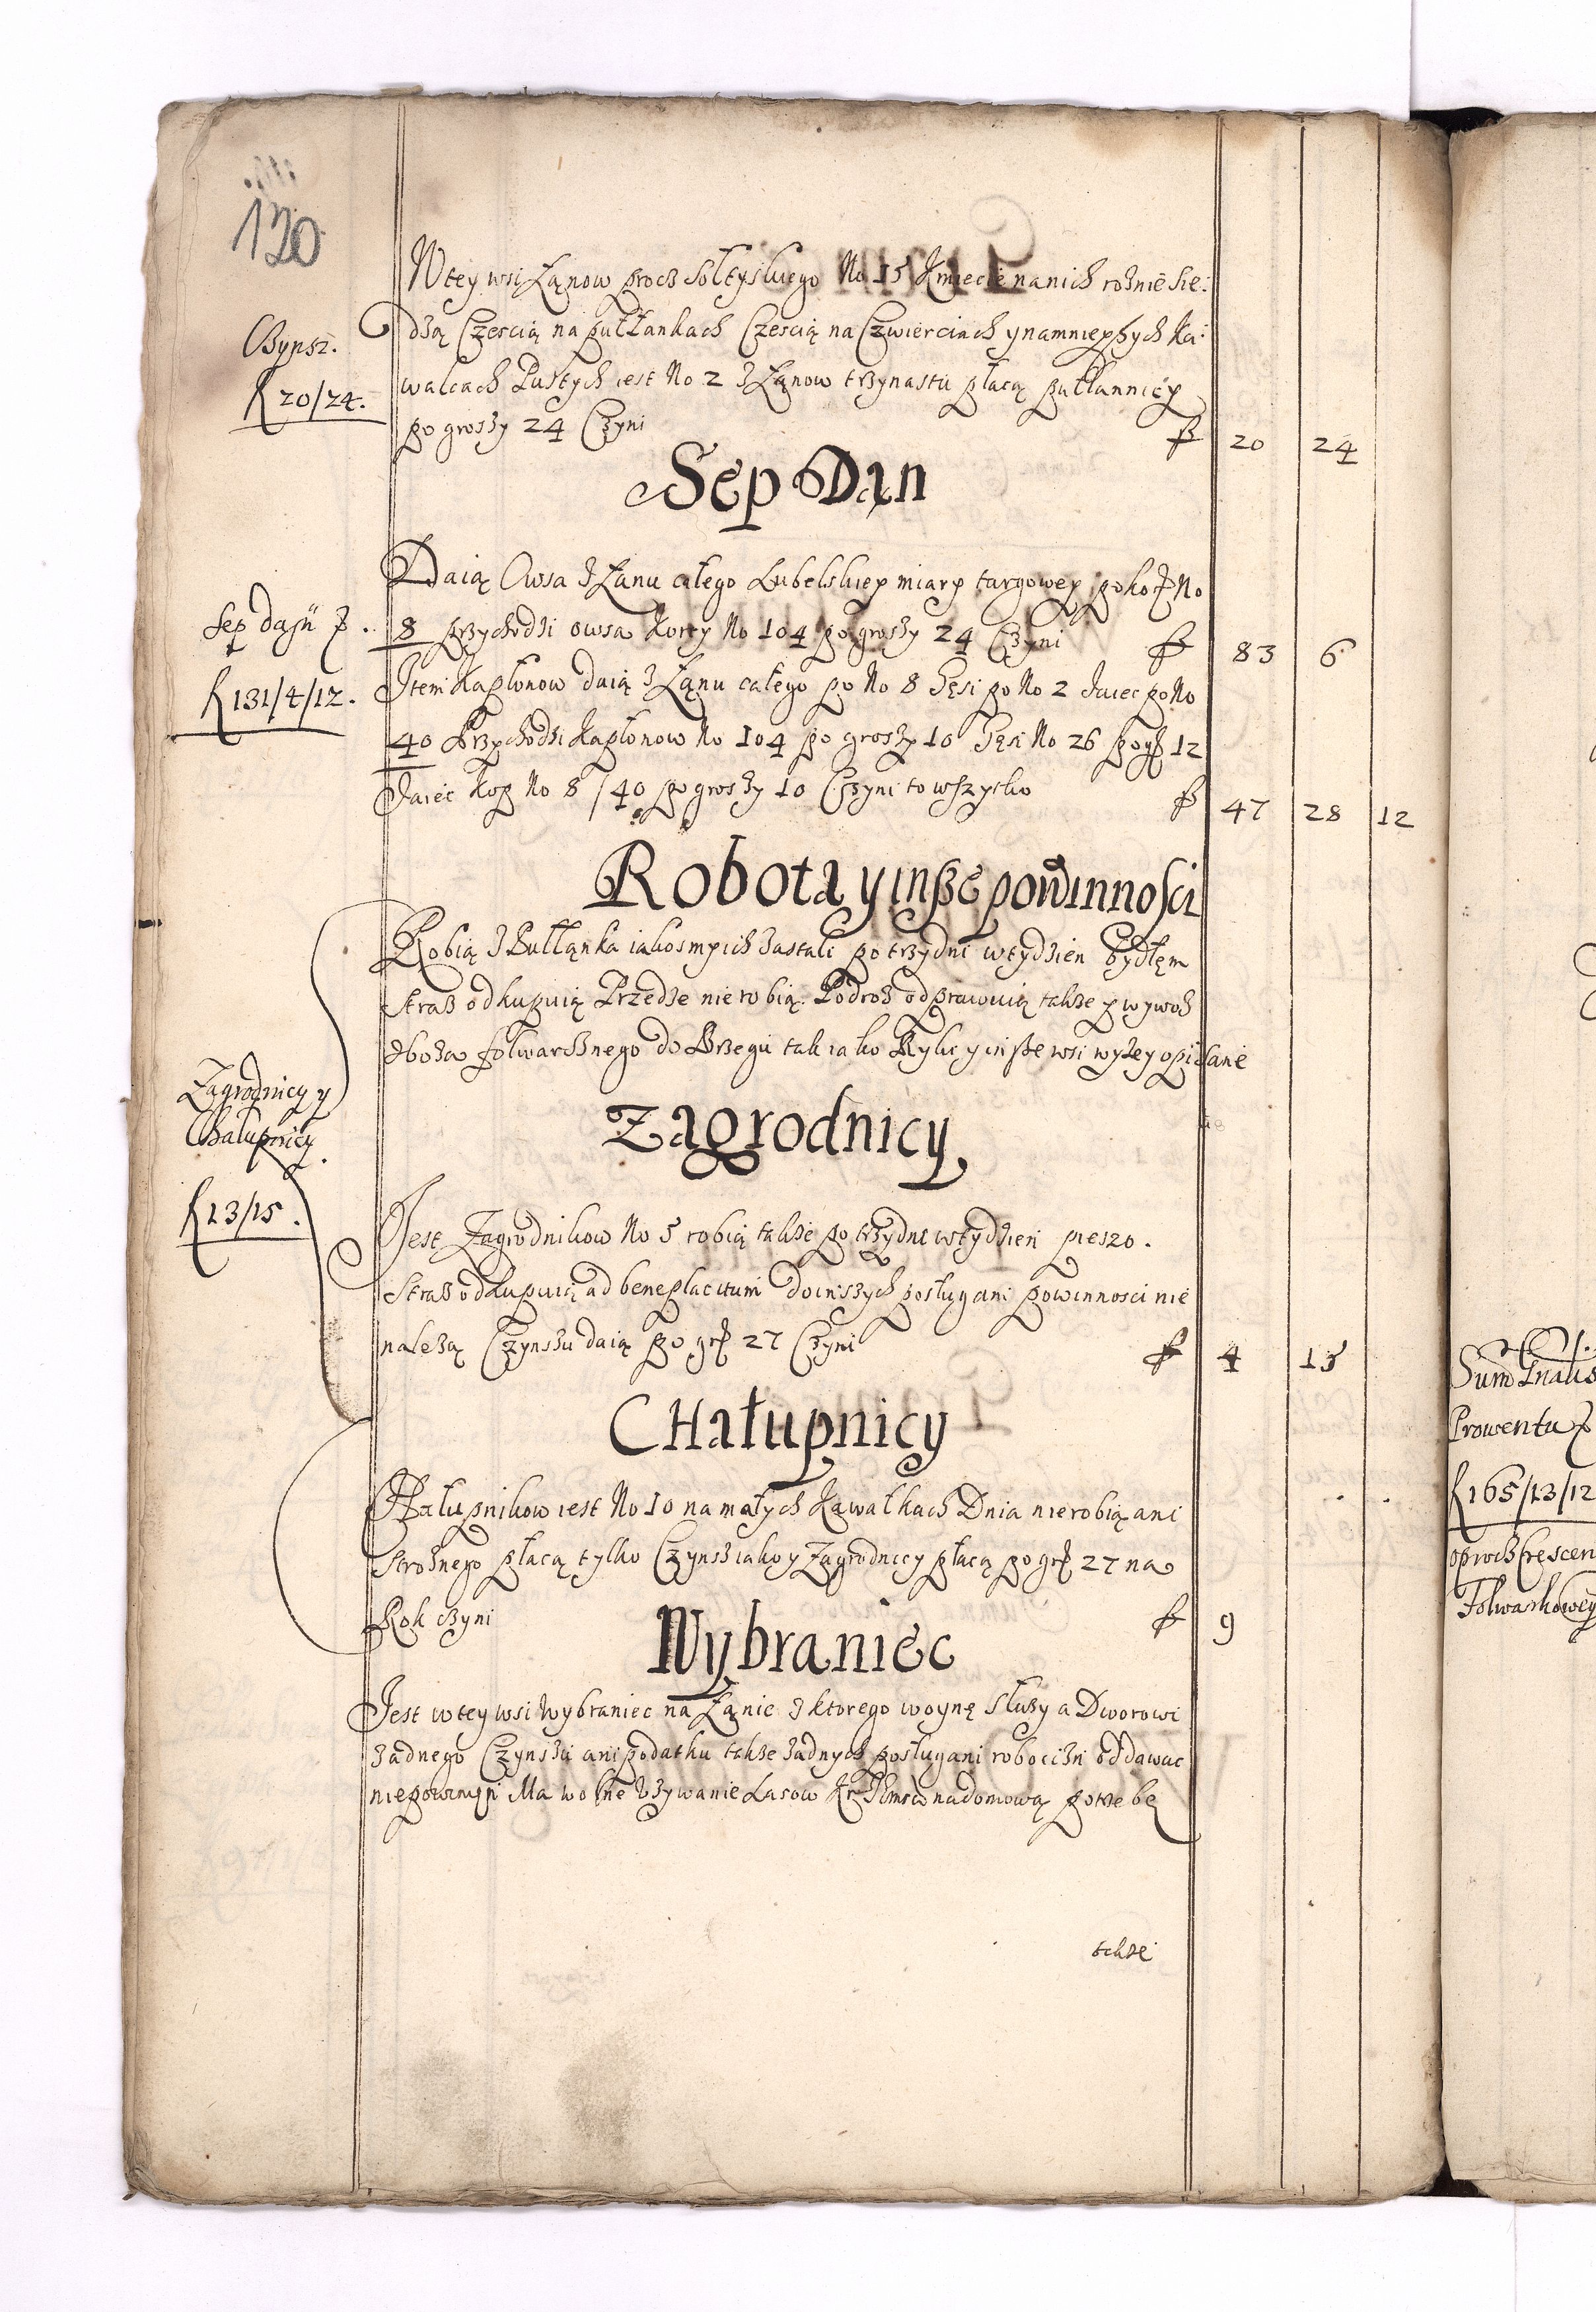 120
W tey wsi Łanow procz Sołtyskiego No 15 Kmiecie na nich rożnie sie:
dzą Częscią na pułłankach Częscią na Czwierciach y namnieyszych ka:
walcach Pustych iest No 2 z Łanow trzynastu płacą pułłannicy
po groszy 24 Czyni ƒ 20 24
Czynsz.
ƒ 20/24.
Sęp Dan
Daią Owsa z Łanu całego Lubelskiey miary targowey po korz No
8 przychodzi owsa korcy No 104 po groszy 24 Czyni ƒ 83 6
Item Kapłonow daią z Łanu całego po No 8 Gęsi po No 2 Jaiec po No
40 Przychodzi Kapłonow No 104 po groszy 10 Gęsi No 26 po gr 12
Jaiec kop No 8/40 po groszy 10 Czyni to wszytko ƒ 47 28 12
Sep
ƒ 131/4/12.
Robota y insze powinnosci
Robią z Pułłanka iakosmy ich zastali po trzy dni w tydzien bydłem
Straż odkupuią Przedze nie robią. Podroż odprawuią także y wywoz
zboża folwarcznego do Brzegu tak iako Ryki y insze wsi wyżey opisane
Zagrodnicy y
Chałupnicy.
ƒ 13/15.
Zagrodnicy
Jest Zagrodnikow No 5 robią także po trzy dni w tydzien pieszo.
Straż odkupuią ad beneplacitum do inszych posług ani powinnosci nie
należą Czynszu daią po gr 27 Czyni ƒ 4 15
CHałupnicy
Hałupnikow iest No 10 na małych Kawałkach Dnia nie robią ani
Strożnego płacą tylko Czynsz iako y Zagrodnicy płacą po gr 27 na
Rok czyni ƒ 9
Wybraniec
Jest w tey wsi Wybraniec na Łanie z ktorego woynę Służy a Dworowi
żadnego Czynszu ani podatku także żadnych posług ani robocizn oddawac
nie powinien Ma wolne Vżywanie Lasow na domową potrzebę
także
Sum
Prowentu
ƒ 165/13/12
oprocz Crescen
Folwarkowey